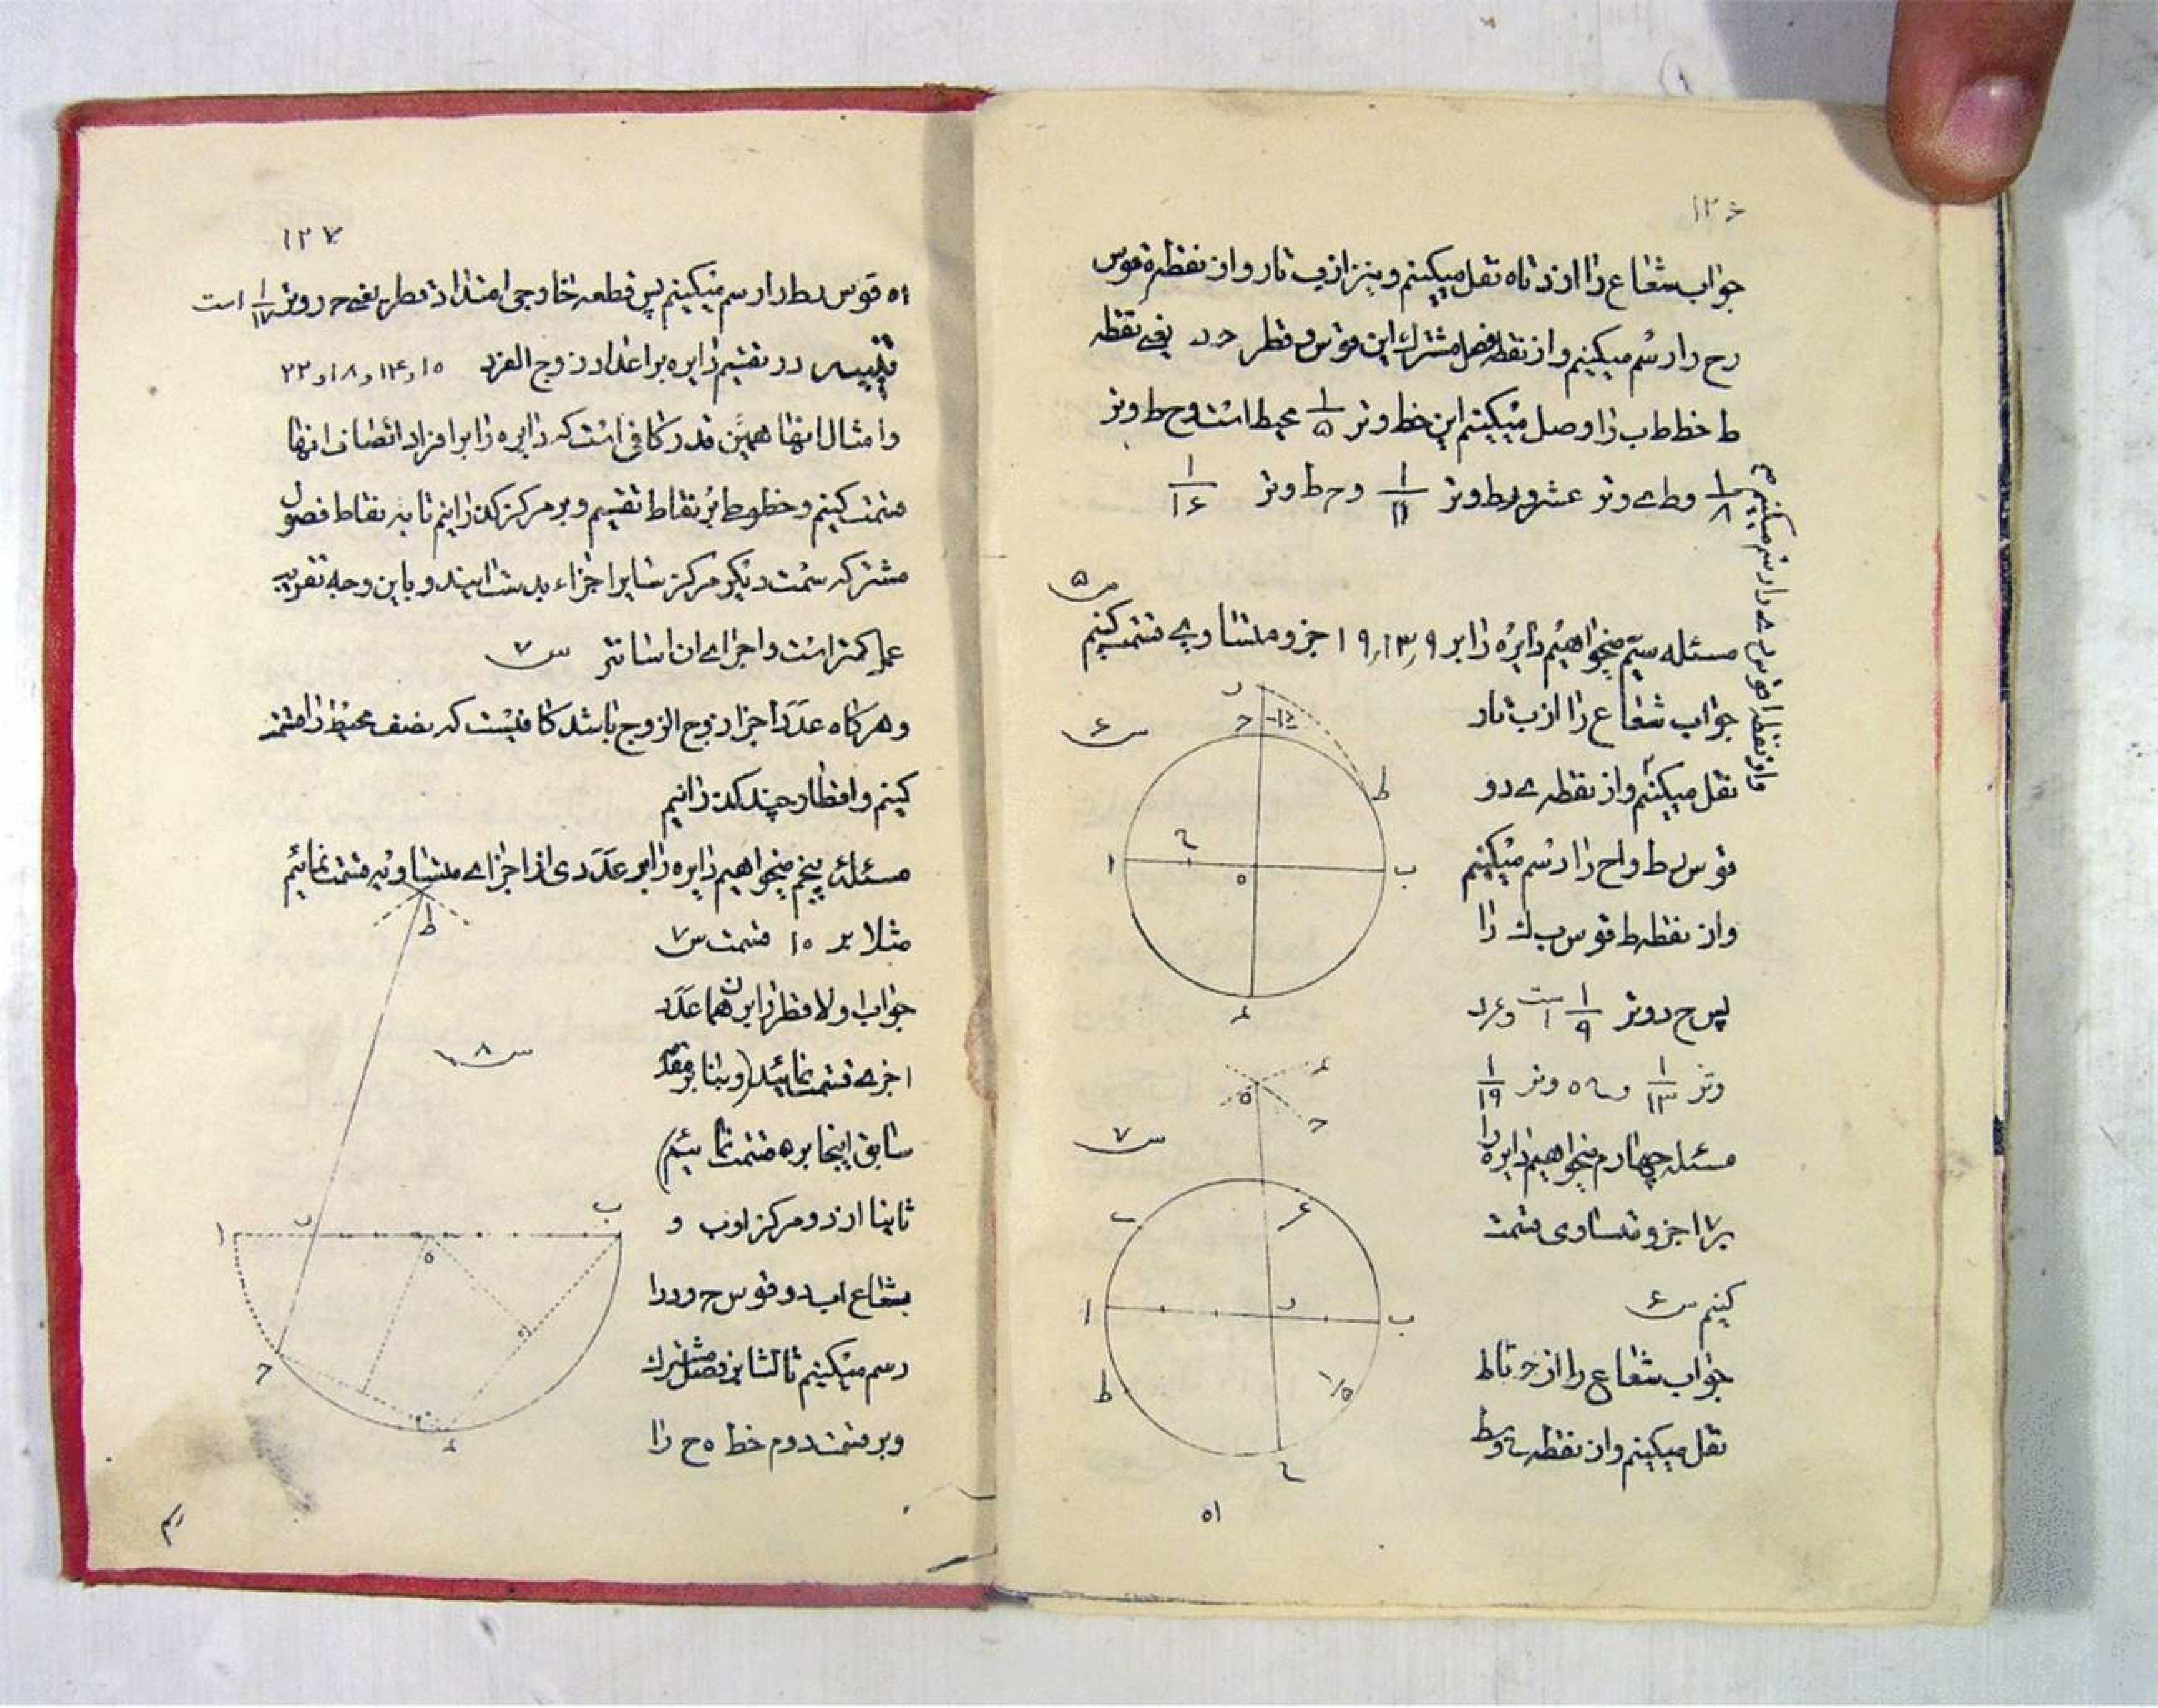 ۱۲۶
جواب شعاع را از د تا ه نقل میکنیم و نیز از ب تا ر و از نقطه ه قوس
رح را رسم میکنیم و از نقطه فصل مشترک این قوس و قطر حد یعنی نقطه
ط خط ط ب را وصل میکنیم این خط وتر ۱/۵ محیط است و ح ط وتر
۱/۸ و ط ی وتر عشر و ر ط وتر ۱/۱۱ و ح ط وتر ۱/۱۶
و از نقطه
را رسم میکنیم
س ۵
مسئله سیّم میخواهیم دایره را بر ۹ ر ۱۳ ر ۱۹ جزو متساوی قسمت کنیم
جواب شعاع را از ب تا ر
س ۶
نقل میکنیم و از نقطه ی دو
قوس ر ط و اح را رسم میکنیم
و از نقطه ط قوس ب ک را
پس ح د وتر ۱/۹ است و
وتر ۱/۱۳ و ه وتر ۱/۱۹
مسئله چهارم میخواهیم دایره را
س ۷
بر ۱۷ جزو متساوی قسمت
کنیم س ۶
جواب شعاع را از ح تا ط
نقل میکنیم و از نقطه ی و ط
اه
۱۲۷
اه قوس ر ط را رسم میکنیم پس قطعه خارجی امتداد قطر یعنی ح ر وتر ۱/۱۷ است
تنبیه در تقسیم دایره بر اعداد زوج الفرد ۱۰ و ۱۴ و ۱۸ و ۲۲
و امثال انها همین قدر کافی است که دایره را بر افراد انصاف انها
قسمت کنیم و خطوط بر نقاط تقسیم و بر مرکز گذرانیم تا به نقاط فصول
مشترکه سمت دیگر مرکز سایر اجزاء بدست ایند و باین وجه تقریب
عمل کمتر است و اجرای ان اسانتر س ۷
و هرگاه عدد اجزا زوج الزوج باشد کافیست که نصف محیط را قسمت
کنیم و اقطار چند گذرانیم
مسئله پنجم میخواهیم دایره را بر عددی از اجزای متساویه قسمت نمائیم
مثلا بر ۱۰ قسمت س ۷
جواب اولا قطر را بر همان عدد
س ۸
اجزی قسمت نمائید (و بنا بر مقدمه
سابق اینجا بر ه قسمت نمائیم)
ثانیا از دو مرکز ا و ب و
بشعاع اب دو قوس ح و د را
رسم میکنیم ثالثا بر فصل مشترک
و بر قسمت دوم خط ه ح را